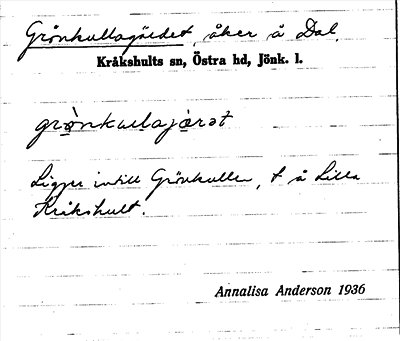 Grönkullagärdet, åker å Dal.
Kråkshults sn, Östra hd, Jönk. l.
grònkulajàrət
Ligger intill Grönkullen, t å Lilla
Kråkshult.
Annalisa Anderson 1936